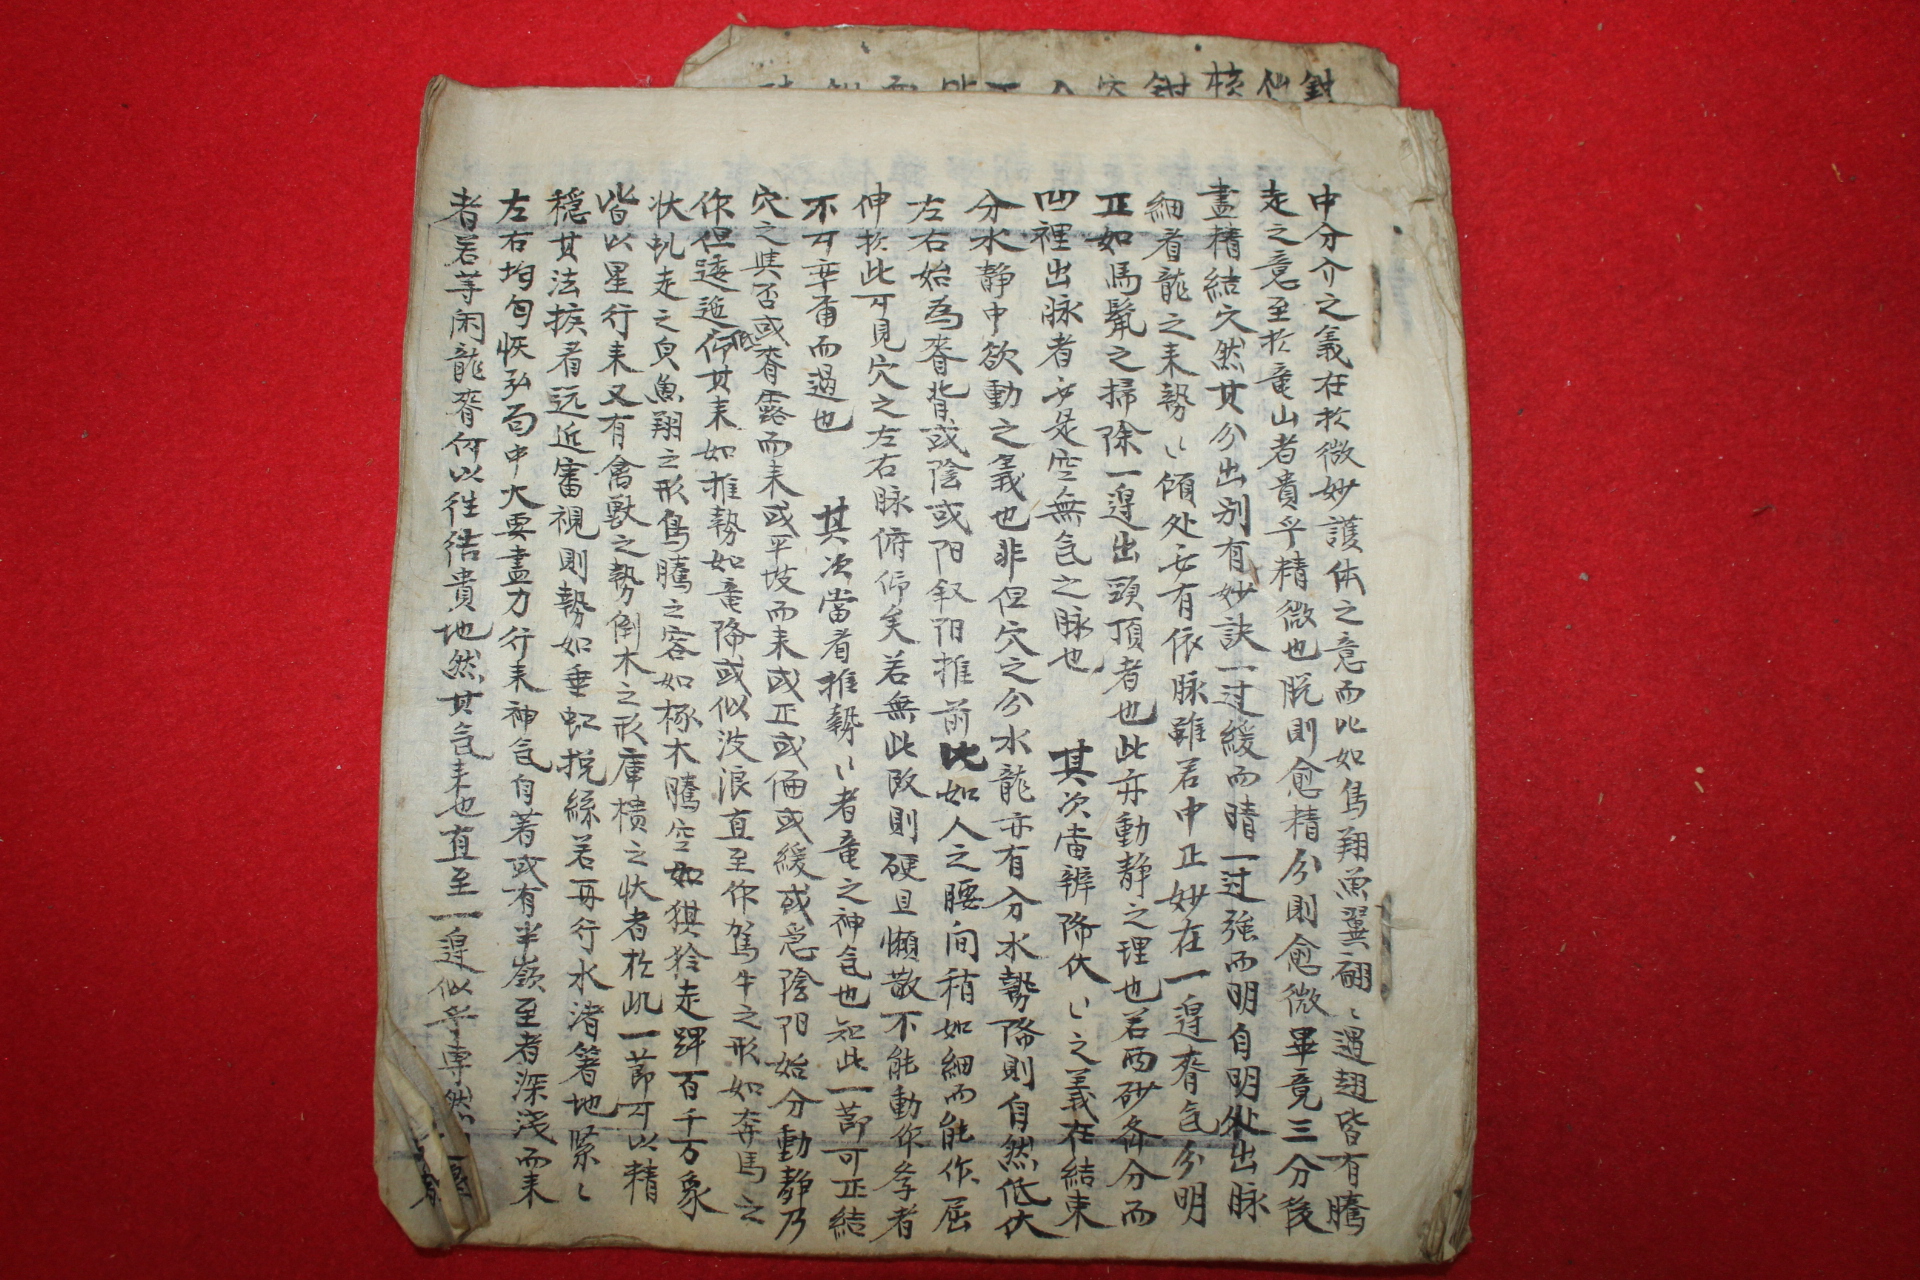 中分介之義在於微妙護体之意而比如鳥翔魚翼翩〻過翅皆有騰
走之意至於竜山者貴乎精微也脫則愈精分則愈微畢竟三分後
盡精結穴然其分出別有妙訣一过緩而晴一过強而明自明处出脉
細看龍之来勢〻傾处亦有依脉雖若中正妙在一邉脊气分明
正如馬鬣之掃除一邉出頭頂者也此亦動靜之理也若兩砂各分而
凹裡出脉者亦是空無气之脉也 其次當辨降伏〻之義在結束
分水靜中欲動之義也非但穴之分水龍亦有分水勢降則自然低伏
左右始為脊背或陰或阳叙阳推前比如人之腰间稍如細而能作屈
伸於此可見穴之左右脉俯仰矣若無此改則硬且懶散不能動作孝者
不可弃甭而過也 其次當看推勢〻者竜之神气也知此一莭可正結
穴之真否或脊露而来或平坡而来或正或偏或緩或急陰阳始分動靜乃
作但逶迤低仰其来如推勢如竜降或似波浪直至作駕牛之形如奔馬之
状虬走之皃魚翔之形鳥騰之容如椓木騰空如猉狑走蹕百千万象
皆以星行来又有禽獸之勢倒木之形庫樻之状者於此一莭可以精
穩其法挨看远近審視則勢如垂虹挽絲若再行水渚著地緊〻
左右均匀恢弘匋中大要盡力行来神气自著或有半嶺至者深浅而来
者若等闲龍脊何以徃徃結貴地然其气来也直至一邉似乎専然